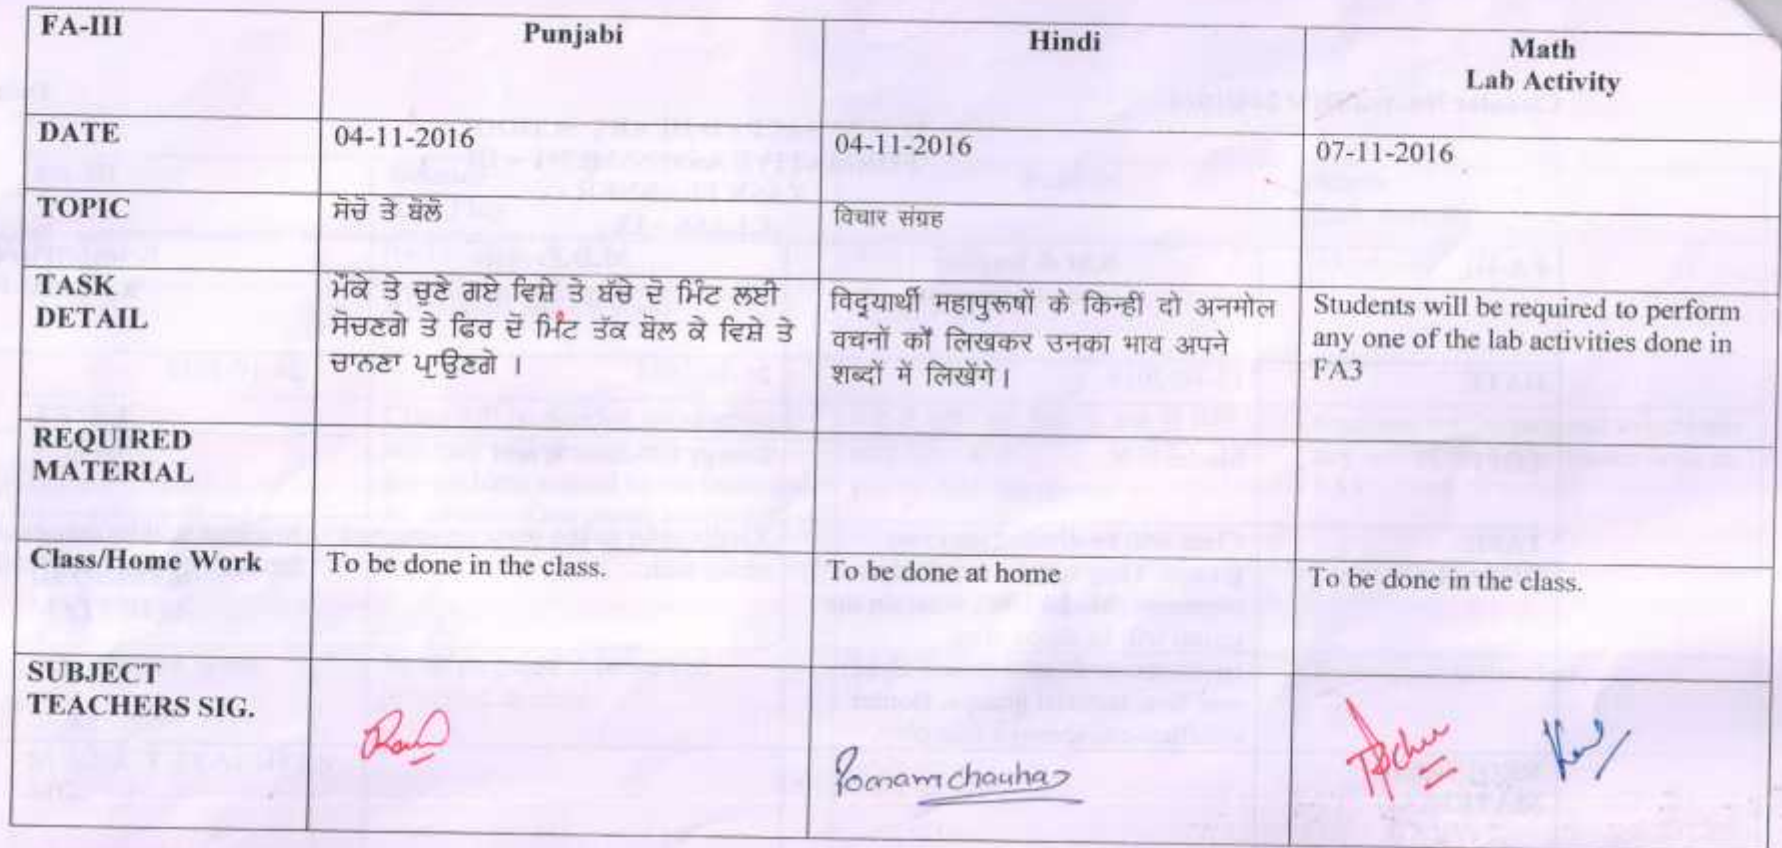 FA-III
Punjabi
Hindi
Math
Lab Activity
DATE
04-11-2016
04-11-2016
07-11-2016
TOPIC
ਸੋਚੋ ਤੇ ਬੋਲੋ
विचार संग्रह
TASK
DETAIL
ਮੌਕੇ ਤੇ ਚੁਣੇ ਗਏ ਵਿਸ਼ੇ ਤੇ ਬੱਚੇ ਦੋ ਮਿੰਟ ਲਈ
ਸੋਚਣਗੇ ਤੇ ਫਿਰ ਦੋ ਮਿੰਟ ਤੱਕ ਬੋਲ ਕੇ ਵਿਸ਼ੇ ਤੇ
ਚਾਨਣਾ ਪਾਉਣਗੇ ।
विद्यार्थी महापुरूषों के किन्हीं दो अनमोल
वचनों कों लिखकर उनका भाव अपने
शब्दों में लिखेंगे।
Students will be required to perform
any one of the lab activities done in
FA3
REQUIRED
MATERIAL
Class/Home Work
To be done in the class.
To be done at home
To be done in the class.
SUBJECT
TEACHERS SIG.